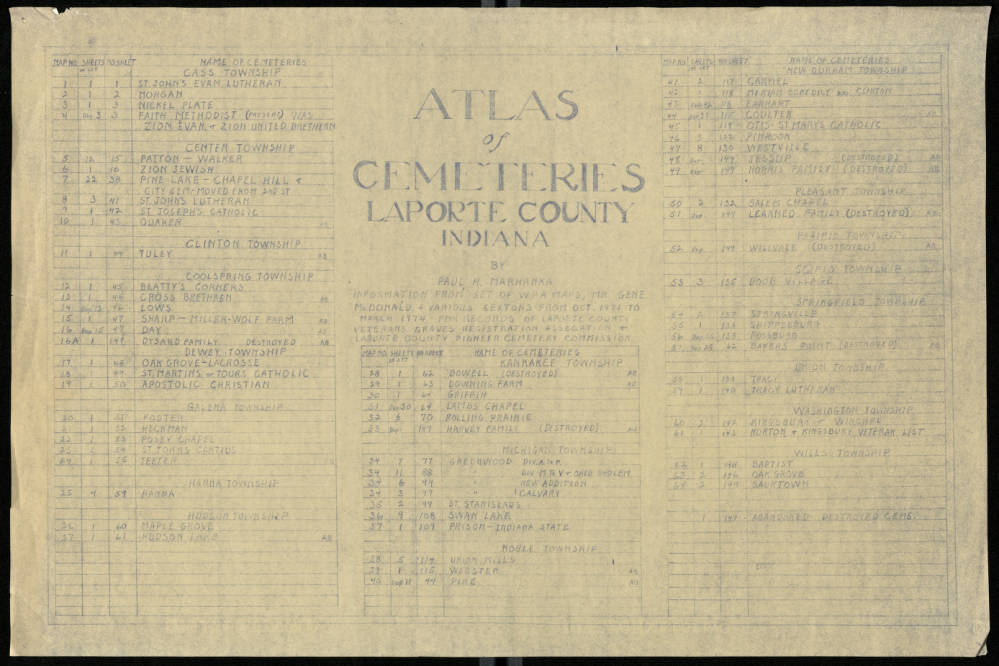 MAP NO. SHEETS NO SHEET NAME OF CEMETERIES
CASS TOWNSHIP
1 1 1 ST. JOHN'S EVAN. LUTHERAN
2 1 2 MORGAN
3 1 3 NICKEL PLATE
4 3 FAITH METHODIST WAS
ZION EVAN. + ZION UNITED BRETHERN
CENTER TOWNSHIP
5 12 15 PATTON - WALKER
6 1 16 ZION JEWISH
7 22 38 PINE LAKE - CHAPEL HILL +
CITY CEM-MOVED FROM 2ND ST
8 3 41 ST. JOHN'S LUTHERAN
9 1 42 ST JOSEPH'S CATHOLIC
10 1 43 QUAKER AB
CLINTON TOWNSHIP
11 1 44 TULEY AB
COOLSPRING TOWNSHIP
12 1 45 BEATTY'S CORNERS
13 1 46 CROSS BRETHREN AB
14 46 LOWS
15 1 47 SHARP - MILLER-WOLF FARM AB
16 47 DAY AB
16A 1 149 DYSARD FAMILY DESTROYED AB
DEWEY TOWNSHIP
17 1 48 OAK GROVE-LACROSSE
18 1 49 ST. MARTINS OF TOURS CATHOLIC
19 1 50 APOSTOLIC CHRISTIAN
GALENA TOWNSHIP
20 1 51 FOSTER
21 1 52 HECKMAN
22 1 53 POSEY CHAPEL
23 ST JOHNS
24 1 55 TEETER
HANNA TOWNSHIP
25 4 59 HANNA
HUDSON TOWNSHIP
26 1 60 MAPLE GROVE
27 1 61 HUDSON LAKE AB
ATLAS
of
CEMETERIES
LAPORTE COUNTY
INDIANA
BY
PAUL H. MARHANKA
INFORMATION FROM SET OF W.P.A MAPS, MR GENE
McDONALD, + VARIOUS SEXTONS FROM OCT. 1971 TO
MARCH 1974. FROM RECORDS OF LAPORTE COUNTY
VETERANS GRAVES REGISTRATION ASSOCATION +
LAPORTE COUNTY PIONEER CEMETERY COMMISSION
MAP NO. SHEETS NO SHEET NAME OF CEMETERIES
KANKAKEE TOWNSHIP
28 1 62 DOWELL (DESTROYED) AB
29 1 63 DOWNING FARM AB
30 1 64 GRIFFIN
31 64 LAMBS CHAPEL
32 6 70 ROLLING PRAIRIE
33 149 HARVEY FAMILY (DESTROYED) AB
MICHIGAN TOWNSHIP
34 7 77 GREENWOOD DIV.
34 11 88 " DIV.
34 6 94 " NEW ADDITION
34 3 97 " CALVARY
35 2 99 ST. STANISLAUS
36 9 108 SWAN LAKE
37 1 109 PRISON-INDIANA STATE
NOBLE TOWNSHIP
38 5 114 UNION MILLS
39 1 115 WEBSTER AB
40 44 PINE AB
MAP NO SHEETS NO SHEET NAME OF CEMETERIES
NEW DURHAM TOWNSHIP
41 2 117 CARMEL
42 1 118 CLINTON
43 EARHART
44 COULTER
45 1 119 OTIS-ST MARYS CATHOLIC
46 3 122 PINHOOK
47 8 130 WESTVILLE
48 149 JESSUP (DESTROYED) AB
49 149 NORRIS FAMILY (DESTROYED) AB
PLEASANT TOWNSHIP
50 2 132 SALEM CHAPEL
51 149 LEARNED FAMILY (DESTROYED) AB
PRAIRIE TOWNSHIP
52 149 WILLVALE (DESTROYED) AB
SCIPIO TOWNSHIP
53 3 135 DOOR VILLAGE
SPRINGFIELD TOWNSHIP
54 2 137 SPRINGVILLE
55 1 138
56 ROSSBURG
57 62 BAKERS POINT (DESTROYED) AB
UNION TOWNSHIP
58 1 139 TRACY
59 1 140 TRACY LUTHERAN
WASHINGTON TOWNSHIP
60 2 142 KINGSBURY
61 1 143 NORTON + KINGSBURY VETERAN LIST
WILLS TOWNSHIP
62 1 144 BAPTIST
63 2 146 OAK GROVE
64 2 148 SAUKTOWN
1 149 ABANDONED DESTROYED CEMS.